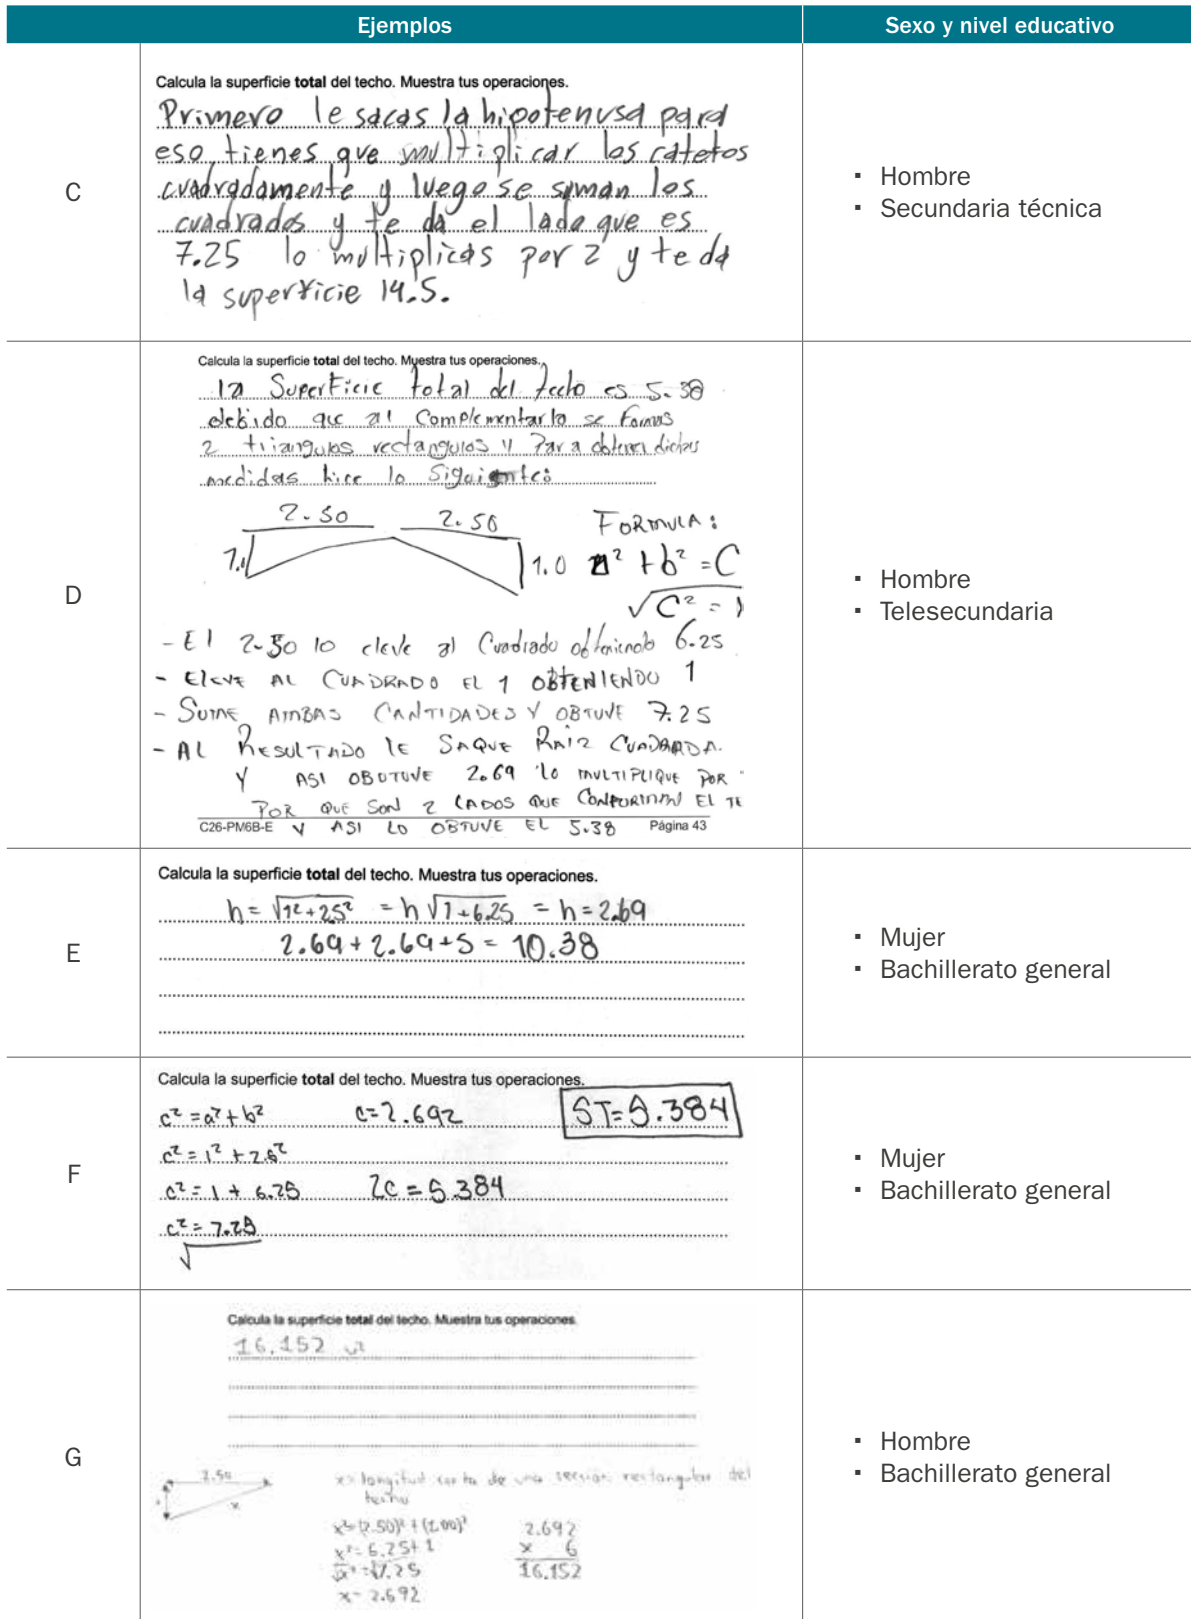 Ejemplos
Sexo y nivel educativo
C
Calcula la superficie total del techo. Muestra tus operaciones.
Primero le sacas la hipotenusa para
eso tienes que multiplicar los catetos
cuadradamente y luego se suman los
cuadrados y te da el lado que es
7.25 lo multiplicas por 2 y te da
la superficie 14.5.
▪ Hombre
▪ Secundaria técnica
D
Calcula la superficie total del techo. Muestra tus operaciones.
la Superficie total del techo es 5.38
debido que al complementarlo se formas
2 triangulos rectangulos y Para obtener dichas
medidas hice lo Siguiente:
2.50 2.50 FORMULA:
1.0 1.0 a² + b² = C
√C² =
- El 2.50 lo eleve al Cuadrado obteniendo 6.25
- ELEVE AL CUADRADO EL 1 OBTENIENDO 1
- SUME AMBAS CANTIDADES Y OBTUVE 7.25
- AL RESULTADO LE SAQUE RAIZ CUADRADA.
Y ASI OBUTUVE 2.69 LO MULTIPLIQUE POR
POR QUE SON 2 LADOS QUE EL TE
C26-PM6B-E Y ASI LO OBTUVE EL 5.38 Página 43
▪ Hombre
▪ Telesecundaria
E
Calcula la superficie total del techo. Muestra tus operaciones.
h = √1²+2.5² = h √1+6.25 = h = 2.69
2.69 + 2.69 + 5 = 10.38
▪ Mujer
▪ Bachillerato general
F
Calcula la superficie total del techo. Muestra tus operaciones.
c² = a² + b² c = 2.692 ST = 5.384
c² = 1² + 2.5²
c² = 1 + 6.25 2c = 5.384
c² = 7.25
√
▪ Mujer
▪ Bachillerato general
G
Calcula la superficie total del techo. Muestra tus operaciones.
16.152 u²
2.50
x
x = longitud corta de una sección rectangular del
techo
x² = (2.50)² + (1.00)²
x² = 6.25 + 1
√x² = √7.25
x = 2.692
2.692
x 6
16.152
▪ Hombre
▪ Bachillerato general